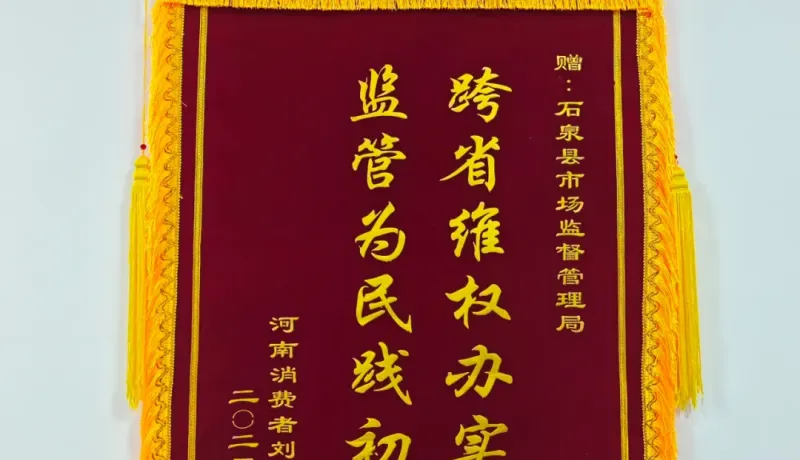 赠：石泉县市场监督管理局
跨省维权办实
监管为民践初
河南消费者刘
二〇二